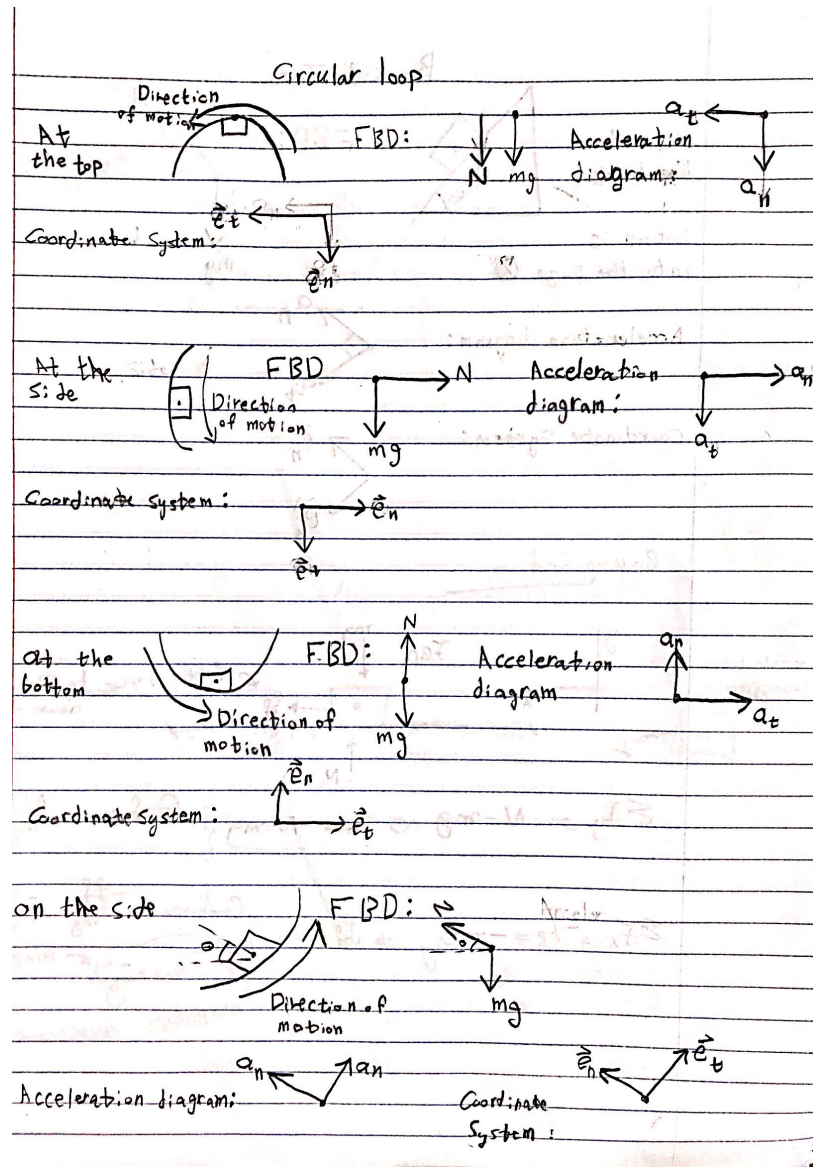 Circular loop
Direction
of motion
At
the top
FBD:
N mg
Acceleration
diagram:
at
an
Coordinate System:
et
en
At the
side
Direction
of motion
FBD
N
mg
Acceleration
diagram:
an
at
Coordinate system:
en
et
at the
bottom
Direction of
motion
FBD:
N
mg
Acceleration
diagram
an
at
Coordinate System:
en
et
on the side
θ
Direction of
motion
FBD:
N
θ
mg
Acceleration diagram:
an
an
Coordinate
System:
en
et